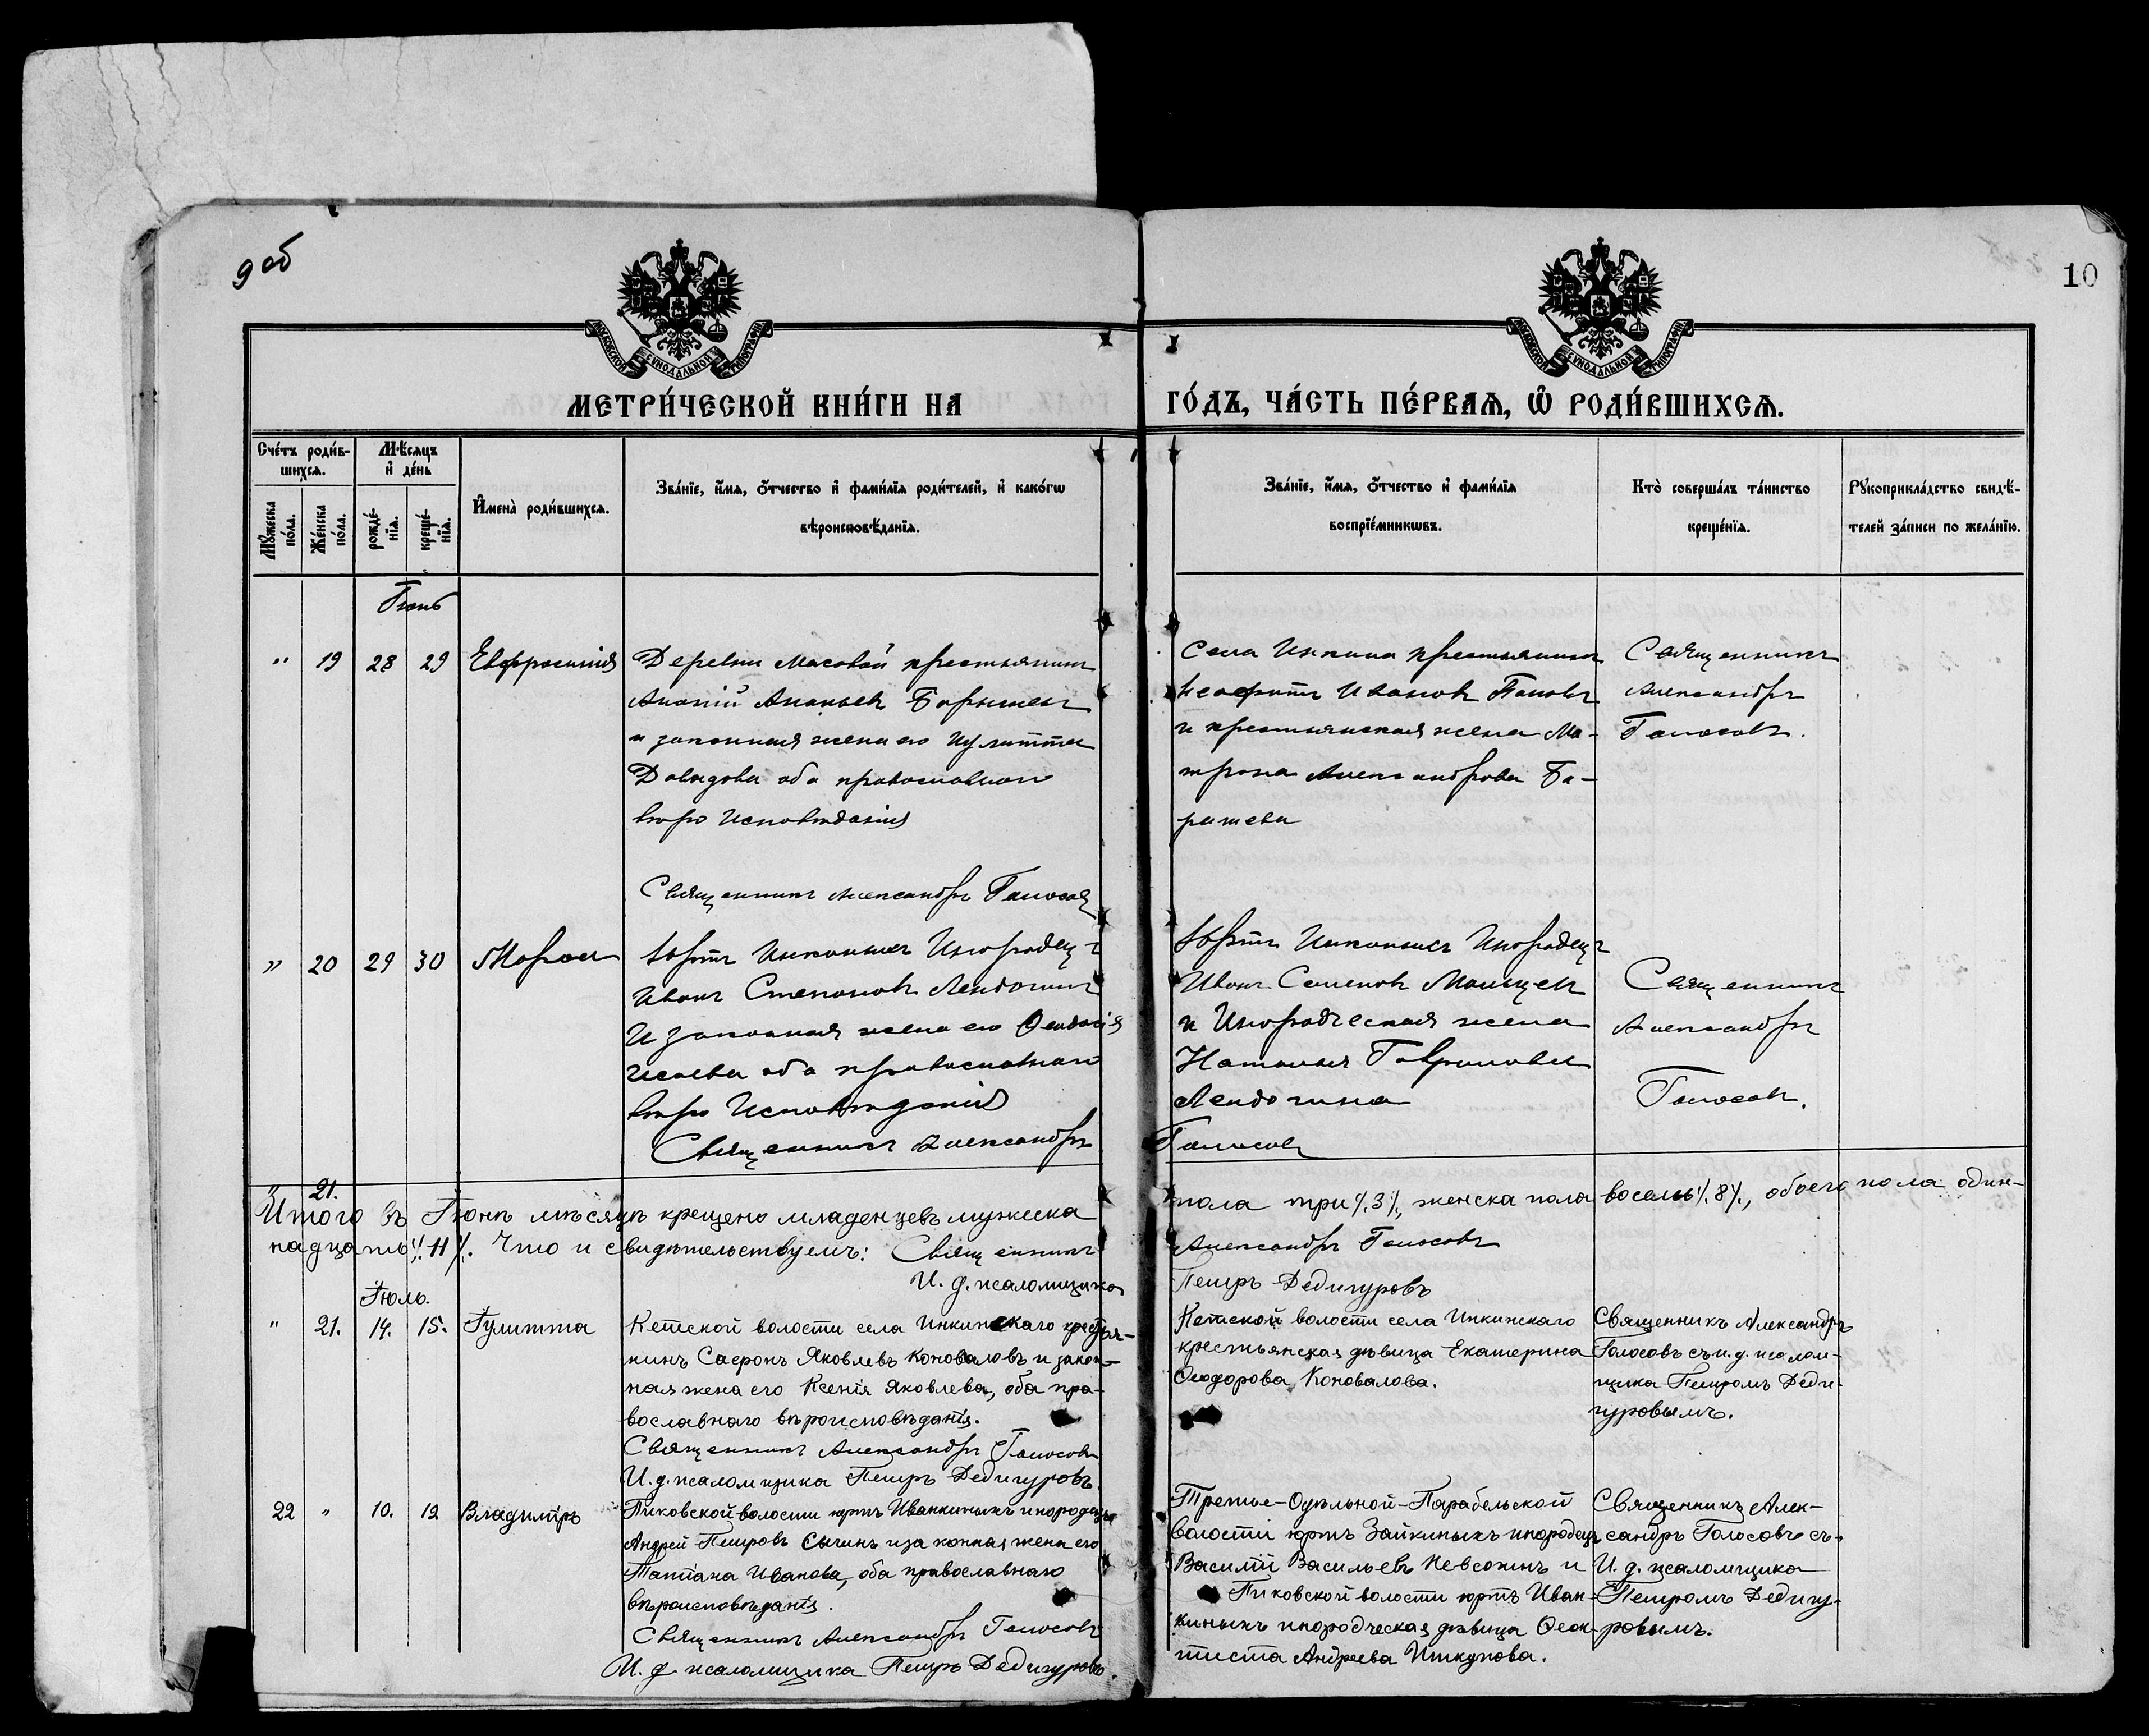 9 об
10
МОСКОВСКОЙ СѴНОДАЛЬНОЙ ТИПОГРАФІИ
МОСКОВСКОЙ СѴНОДАЛЬНОЙ ТИПОГРАФІИ
МЕТРИ́ЧЕСКОЙ КНИ́ГИ НА
ГО́ДЪ, ЧА́СТЬ ПЕ́РВАѦ, Ѡ҆ РОДИ́ВШИХСѦ.
Сче́тъ роди́в-
шихсѧ.
Мꙋ́жеска по́ла.
Же́нска по́ла.
Мѣ́сѧцъ
и҆ де́нь
рожде́-
нїѧ.
креще́-
нїѧ.
И҆мена̀ роди́вшихсѧ.
Зва́нїе, и҆́мѧ, ѻ҆́тчество и҆ фами́лїѧ роди́телей, и҆ како́гѡ
вѣроисповѣ́данїѧ.
Зва́нїе, и҆́мѧ, ѻ҆́тчество и҆ фами́лїѧ
воспрїе́мникѡвъ.
Кто̀ соверша́лъ та́инство
креще́нїѧ.
Рꙋкоприкла́дство свидѣ́-
телей за́писи по жела́нїю.
Іюнь
" 19 28 29 Евфросинія
Деревни Масовой крестьянинъ
Ананій Ананьевъ Барышевъ
и законная жена его Иулитта
Давыдова оба православнаго
вѣро Исповѣданія
Священникъ Александръ Голосовъ
Села Инкина крестьянинъ
Неофитъ Ивановъ Пановъ
и крестьянская жена Ма-
трона Александрова Ба-
рышева
Священникъ
Александръ
Голосовъ.
" 20 29 30
Юртъ Инкиныхъ Инородецъ
Иванъ Степановъ Лендогинъ
И законная жена его Ѳеодосія
Исаева оба православнаго
вѣро Исповѣданія
Священникъ Александръ
Голосовъ
Юртъ Инкиныхъ Инородецъ
Иванъ Семеновъ
и Инородческая жена
Наталья Гаврилова
Лендогина
Священникъ
Александръ
Голосовъ.
" 21.
Итого въ Іюнѣ мѣсяцѣ крещено младенцевъ мужеска
пола три ⁒ 3 ⁒, женска пола восемь ⁒ 8 ⁒, обоего пола один-
надцать ⁒ 11 ⁒. Что и свидѣтельствуемъ: Священникъ
Александръ Голосовъ
И. д. псаломщика
Петръ Дедигуровъ
Іюль.
" 21. 14. 15. Іулитта
Кетской волости села Инкинскаго крестья-
нинъ Сафронъ Яковлевъ Коноваловъ и закон-
ная жена его Ксенія Яковлева, оба пра-
вославнаго вѣроисповѣданія.
Священникъ Александръ Голосовъ
И. д. псаломщика Петръ Дедигуровъ.
Кетской волости села Инкинскаго
крестьянская дѣвица Екатерина
Ѳеодорова Коновалова.
Священникъ Александръ
Голосовъ съ и. д. псалом-
щика Петромъ Деди-
гуровымъ.
22 " 10. 12 Владиміръ
Пиковской волости юртъ Иванкиныхъ инородецъ
Андрей Петровъ Сычинъ и законная жена его
Татіана Иванова, оба православнаго
вѣроисповѣданія.
Священникъ Александръ Голосовъ
И. д. псаломщика Петръ Дедигуровъ.
Третье-Одѣльной-Парабельской
волости юртъ Зайкиныхъ инородецъ
Василій Васильевъ Невсокинъ и
Пиковской волости юртъ Иван-
киныхъ инородческая дѣвица Ѳеок-
тиста Андреева Иткупова.
Священникъ Алек-
сандръ Голосовъ съ
И. д. псаломщика
Петромъ Дедигу-
ровымъ.